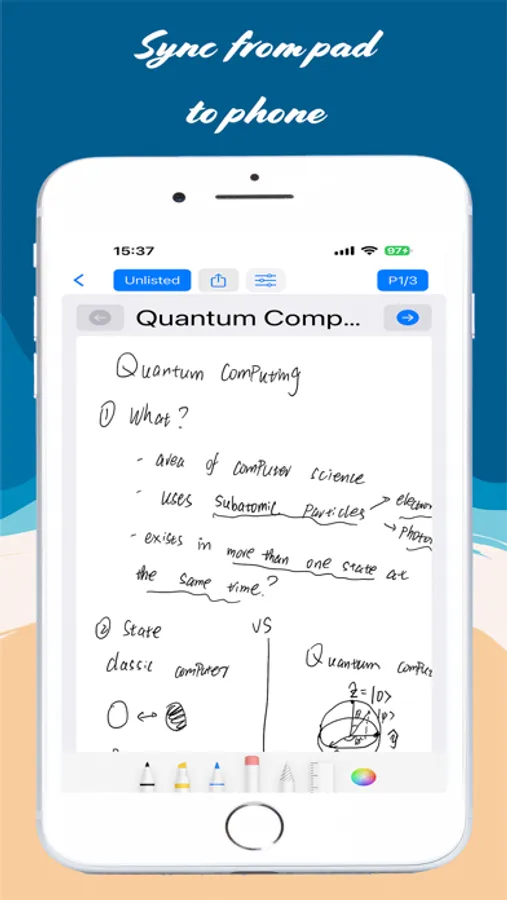 Sync from pad
to phone
15:37
97
Unlisted
P1/3
Quantum Comp...
Quantum Computing
① What?
- area of computer science
- uses subatomic particles → electron
→ Photon
- exises in more than one state at
the same time?
② State VS
classic computer Quantum compu
Z=|0>
θ |φ>
ŷ